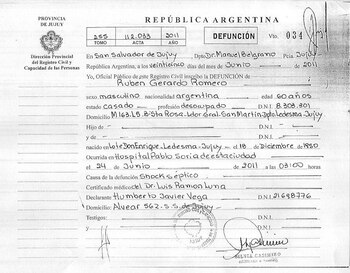 PROVINCIA
DE JUJUY
Dirección Provincial
del Registro Civil y
Capacidad de las Personas
REPÚBLICA ARGENTINA
255 112.033 2011
TOMO ACTA AÑO
DEFUNCIÓN
Nº 034
En San Salvador de Jujuy Dpto. Dr. Manuel Belgrano Pcia. Jujuy
República Argentina, a los veinticinco días del mes de Junio de 2011
Yo, Oficial Público de este Registro Civil inscribo la DEFUNCIÓN de
Ruben Gerardo Romero
sexo masculino nacionalidad argentina edad 60 años
estado casado profesión desocupado D.N.I. 8.308.401
Domicilio M163.L9.Bº Sta Rosa.Ldor Gral.San Martín.Dpto Ledesma.Jujuy
Hijo de D.N.I.
y de D.N.I.
nacido Lote Don Enrique.Ledesma.Jujuy el 18 de Diciembre de 1950
Ocurrida en Hospital Pablo Soria de esta ciudad
el 24 de Junio de 2011 a las 03:00 horas
Causa de la defunción Shock séptico
Certificado médico del Dr. Luis Ramon Luna
Declarante Humberto Javier Vega D.N.I. 21648776
Domicilio: Alvear 562.S.S. de Jujuy
Testigos: D.N.I.
y D.N.I.
SILVIA CASIMIRO